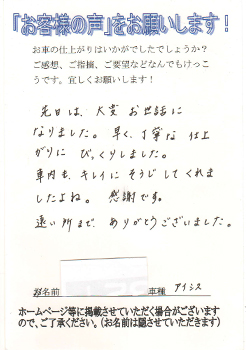 「お客様の声」をお願いします！
お車の仕上がりはいかがでしたでしょうか？
ご感想、ご指摘、ご要望などなんでもけっこ
うです。宜しくお願いします！
先日は、大変お世話に
なりました。早く、丁寧な仕上
がりにびっくりしました。
車内も、キレイにそうじしてくれま
したよね。感謝です。
遠い所まで、ありがとうございました。
お名前 車種 アイシス
ホームページ等に掲載させていただく場合がございます
ので、ご了承ください。（お名前は隠させていただきます）